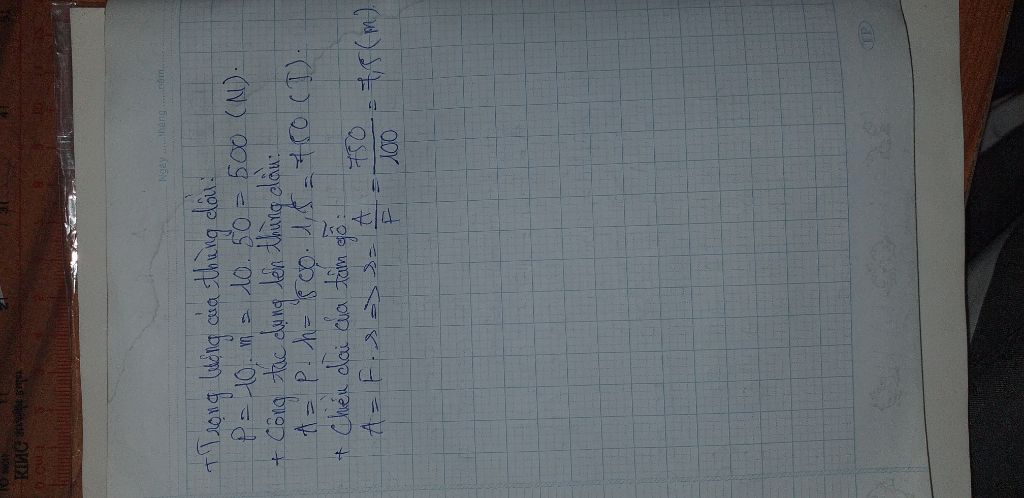 Ngày ..... tháng ..... năm .....
+ Trọng lượng của thùng dầu:
P = 10 . m = 10 . 50 = 500 (N).
+ Công tác dụng lên thùng dầu:
A = P . h = 500 . 1,5 = 750 (J).
+ Chiều dài của tấm gỗ:
A = F . s => s = A/F = 750/100 = 7,5 (m)